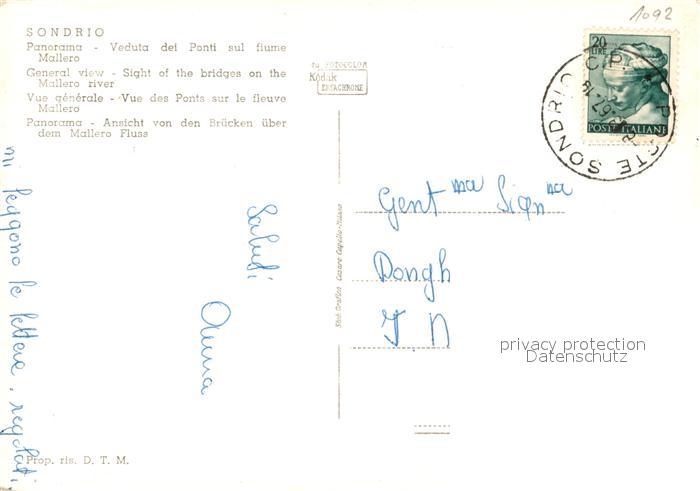 1092
SONDRIO
Panorama - Veduta dei Ponti sul fiume
Mallero
General view - Sight of the bridges on the
Mallero river
Vue générale - Vue des Ponts sur le fleuve
Mallero
Panorama - Ansicht von den Brücken über
dem Mallero Fluss
FOTOCOLOR
Kodak
EKTACHROME
20
LIRE
POSTE ITALIANE
POSTE SONDRIO
mi leggono le lettere, regolati
Saluti
Anna
Stab. Grafico Cesare Capello - Milano
Gent.ma Sign.na
Dongh
I N
privacy protection
Datenschutz
Prop. ris. D. T. M.